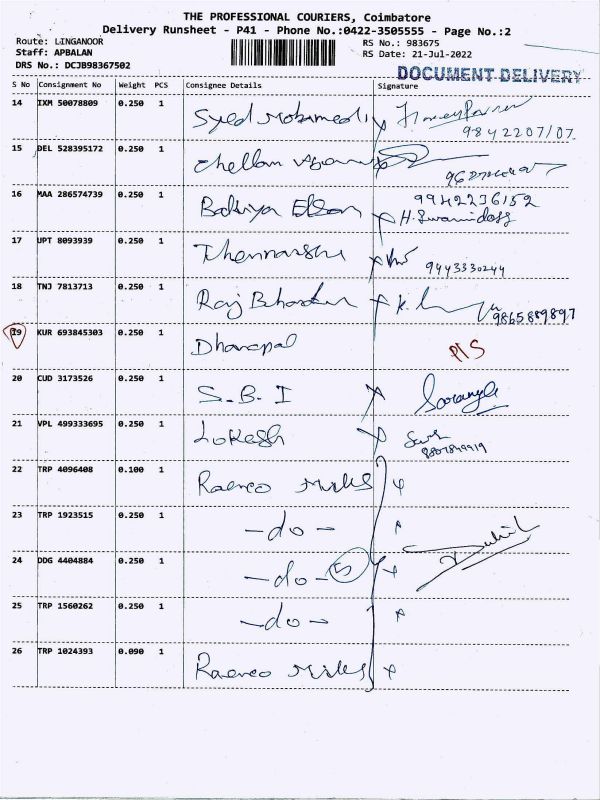 THE PROFESSIONAL COURIERS, Coimbatore
Delivery Runsheet - P41 - Phone No.:0422-3505555 - Page No.:2
Route: LINGANOOR
RS No.: 983675
Staff: APBALAN
RS Date: 21-Jul-2022
DRS No.: DCJB98367502
DOCUMENT DELIVERY
S No Consignment No Weight PCS Consignee Details Signature
14 IXM 50078809 0.250 1 Syed
9842207107
15 DEL 528395172 0.250 1 Chellam
16 MAA 286574739 0.250 1 9942236152
H. Swamidoss
17 UPT 8093939 0.250 1
9443330244
18 TNJ 7813713 0.250 1 Raj K.
9865889897
19 KUR 693845303 0.250 1 Dhanapal
20 CUD 3173526 0.250 1 S.B.I
21 VPL 499333695 0.250 1 Lokesh
22 TRP 4096408 0.100 1 Mills
23 TRP 1923515 0.250 1 -do-
24 DDG 4404884 0.250 1 -do- 5
25 TRP 1560262 0.250 1 -do-
26 TRP 1024393 0.090 1 Mills